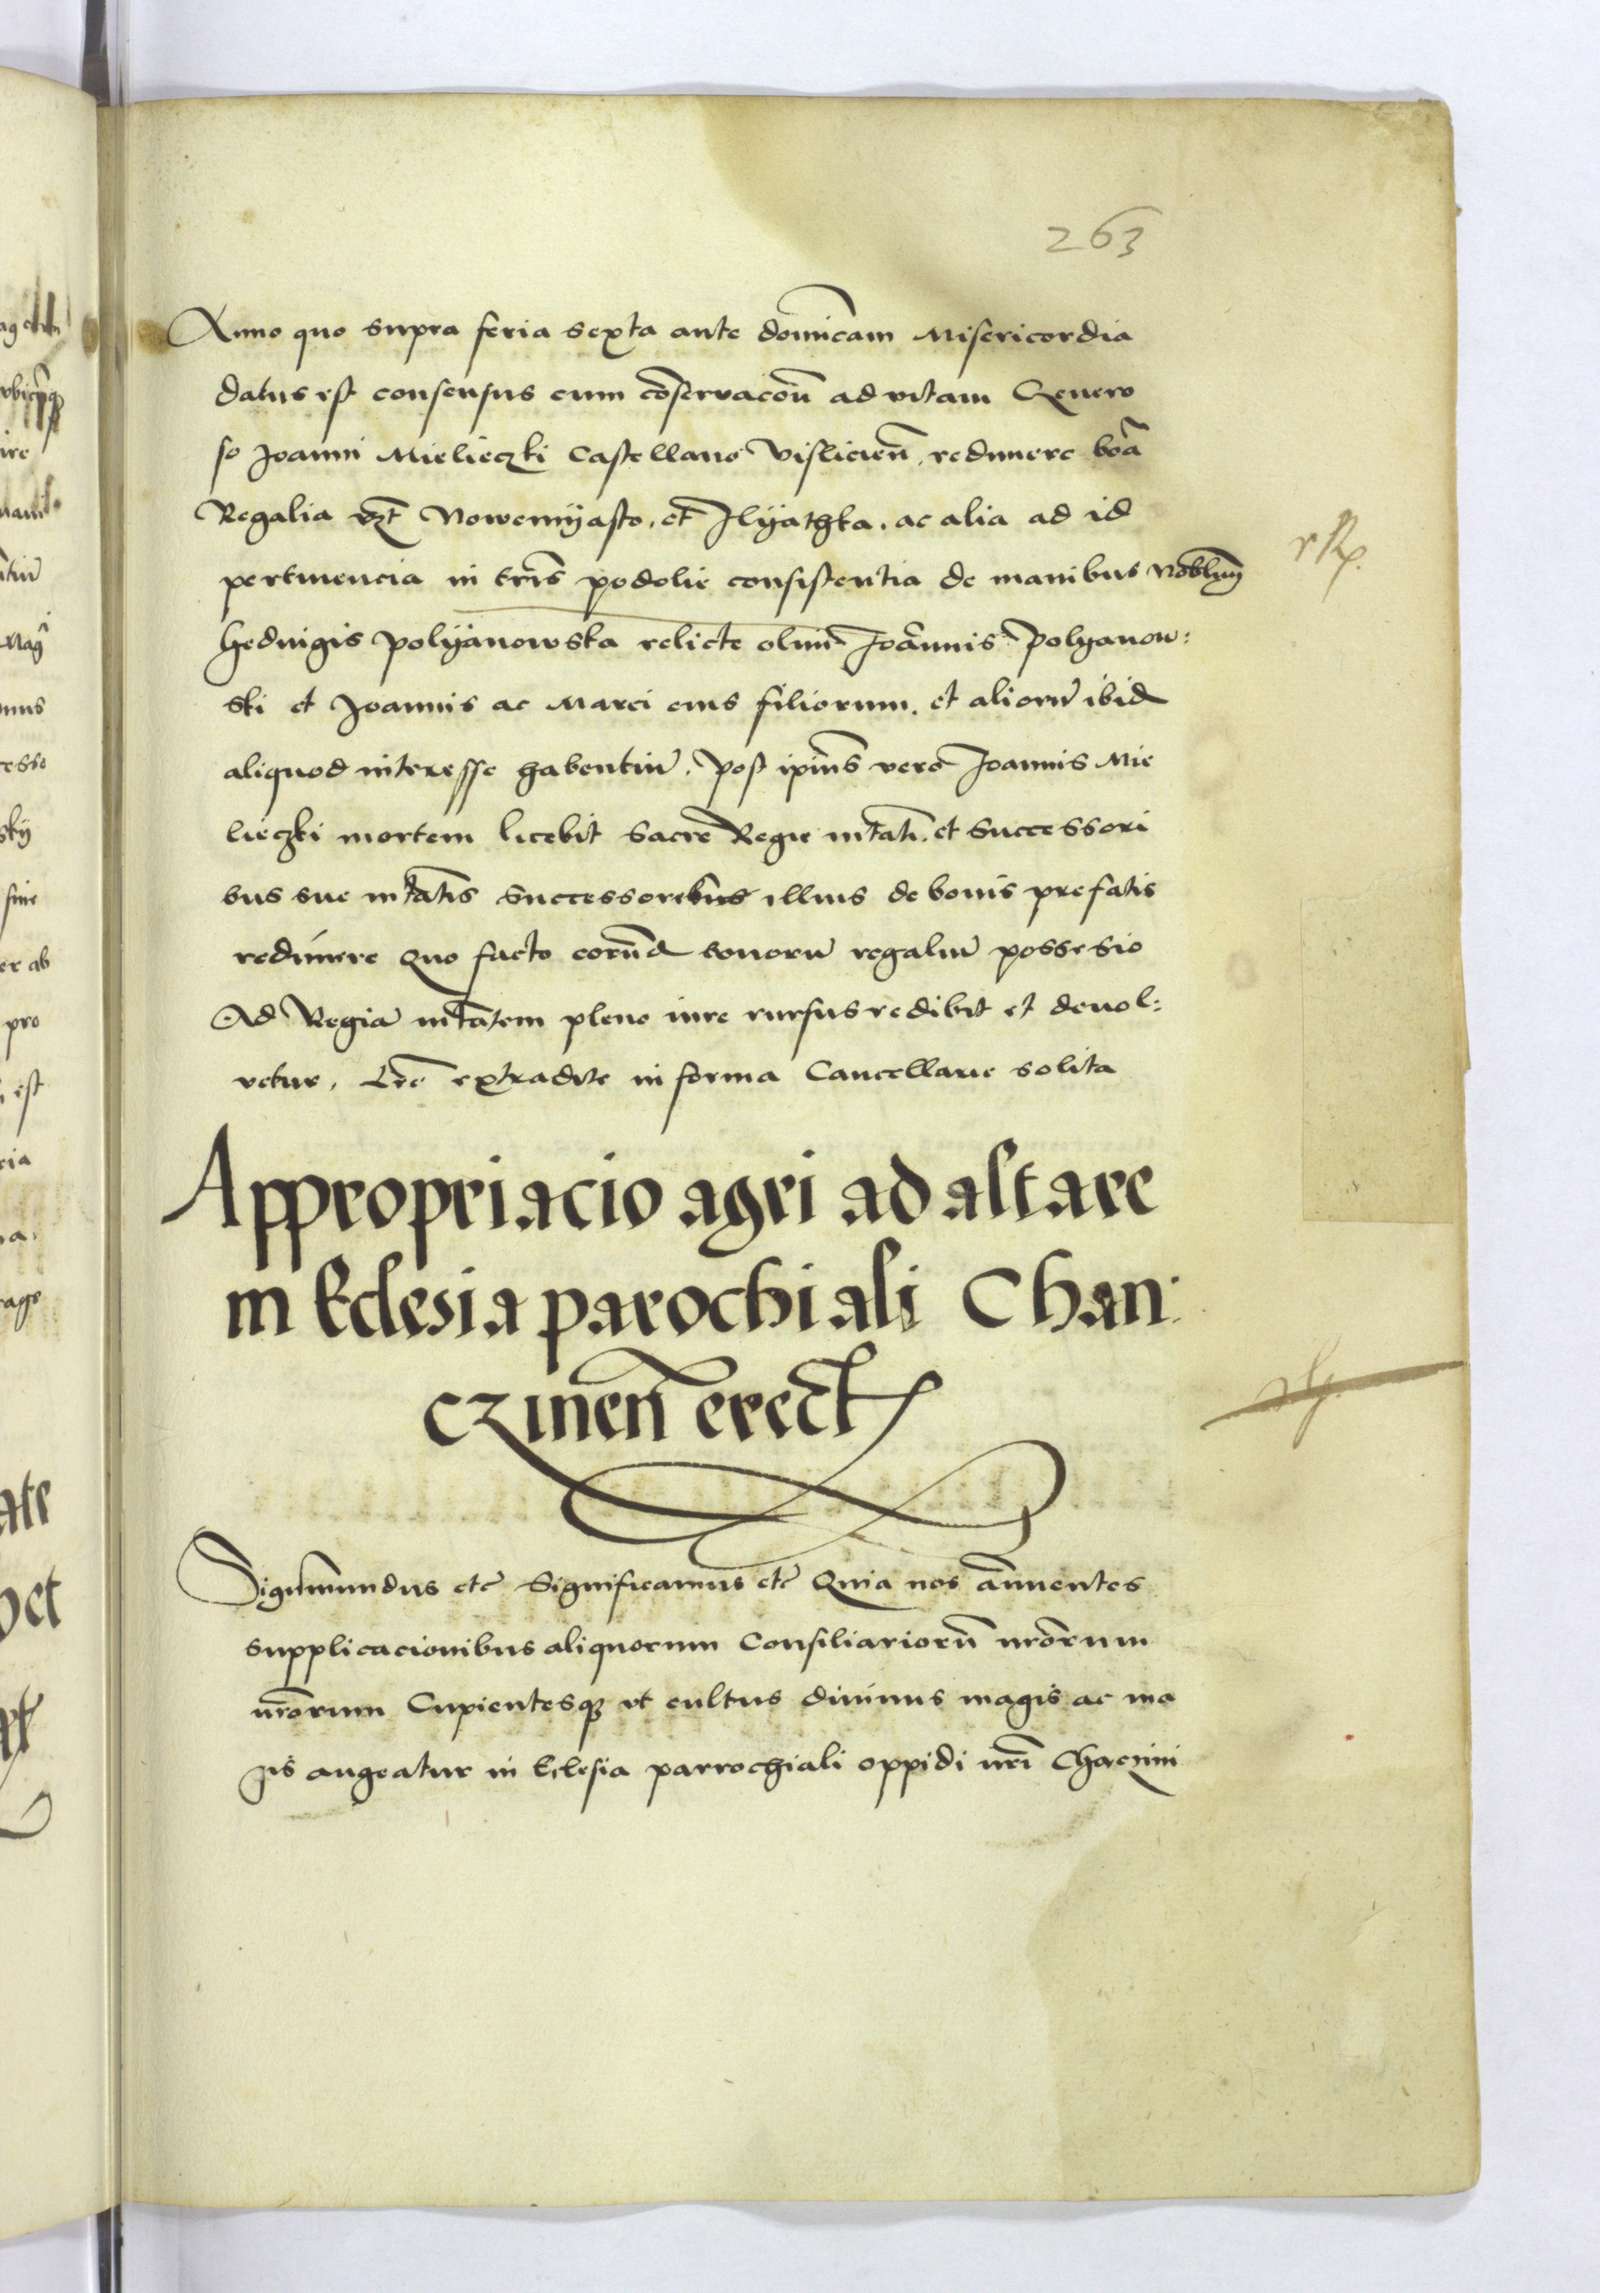 263
Anno quo supra feria sexta ante domicam Misericordia
datus est consensus cum coservacoe ad vitam Genero
so Joanni Mielieczki Castellano Vislicien redimere boa
Regalia vzt Nowemyasto, et Ilyathka, ac alia ad id
pertinencia in tris podolie consistentia de manibus Noblium
hedvigis Polyanowska relicte olim Joannis Polyanow:
ski et Joannis ac Marci eius filiorum, et alioru ibid
aliquod interesse habentiu. Post ipius vero Joannis Mie
lieczki mortem licebit Sacre Regie mtati, et Successori
bus sue mtatis Successoribus illius de bonis prefatis
redimere Quo facto eorud bonoru regaliu possesio
Ad Regia mtatem pleno iure rursus redibit et devol:
vetur, Lre extradite in forma Cancellarie solita
Appropriacio agri ad altare
in Eclesia parochiali Chan:
czinen erect
Sigismundus etc Significamus etc Quia nos annuentes
supplicacionibus aliquorum Consiliarioru nrorum
nrorum Cupientesq vt cultus divinus magis ac ma
gis augeatur in Eclesia parrochiali oppidi nri Chaczini